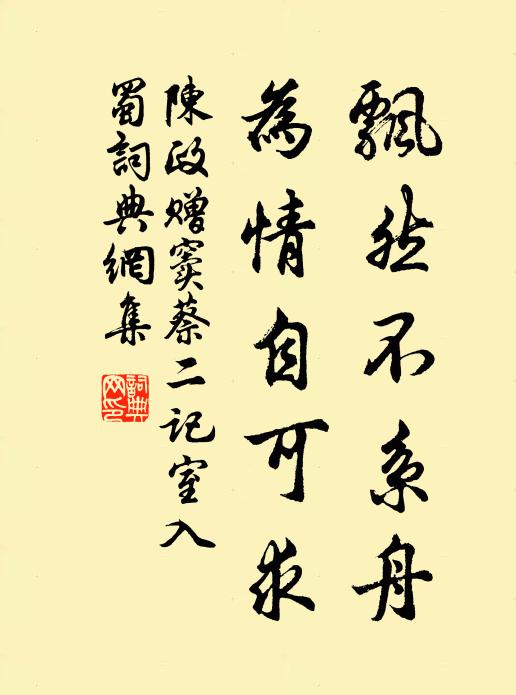 飄然不系舟
為情自可求
陳政贈竇蔡二記室入
蜀詞典網集
詞典
网印